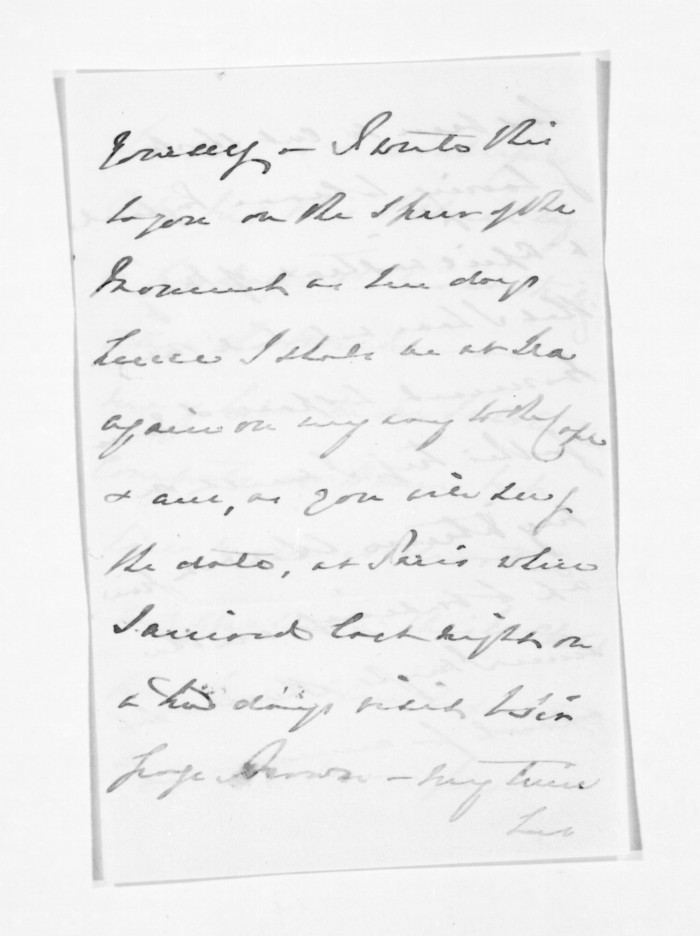 I write this
to you on the spur of the
moment as ten days
hence I shall be at Sea
again on my way to the Cape
& am, as you will see by
the date, at Paris where
I arrived last night on
a two days visit to Sir
George Brown - my time
has